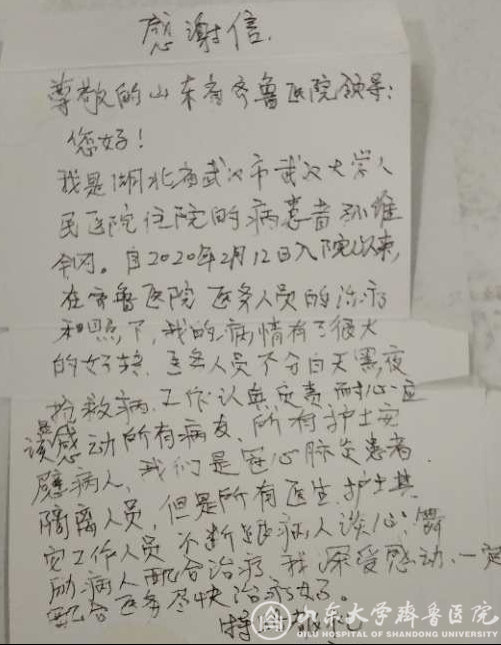 感谢信.
尊敬的山东省齐鲁医院领导:
您好!
我是湖北省武汉市武汉大学人
民医院住院的病患者孙维
。自2020年2月12日入院以来,
在齐鲁医院医务人员的治疗
和照下,我的病情有了很大
的好转.医务人员不分白天黑夜
抢救病.工作认真负责耐心.应
该感动所有病友,所有护士安
病人,我们是冠心肺炎患者.
隔离人员,但是所有医生.护士其
它工作人员不断给病人谈心,
励病人配合治疗.我深受感动.一定
配合医务尽快治疗好。
特此敬礼
山东大学齊鲁医院
QILU HOSPITAL OF SHANDONG UNIVERSITY